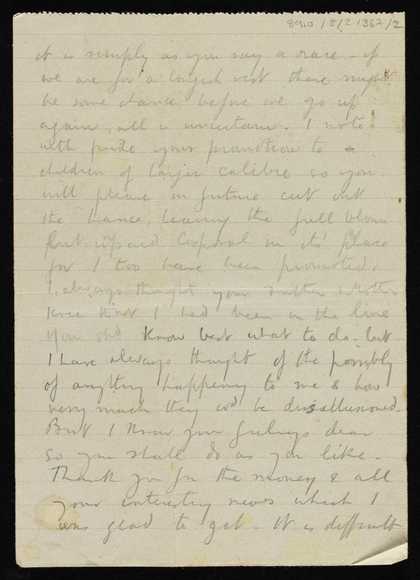 8910/8/2/362/2
it is simply as you say a race. if
we are for a longish rest there might
be some chance before we go up
again, all is uncertain. I note
with pride your promotion to a
children of larger calibre so you
will please in future cut out
the Lance, leaving the full blown
Corporal in its place
for I too have been promoted.
I always thought your Mother
knew that I had been in the line
You shd know best what to do. but
I have always thought of the possibly
of anything happening to me & how
very much they wd be disillusioned.
But I know your feelings dear
so you shall do as you like.
Thank you for the money & all
your interesting news which I
was glad to get. It is difficult